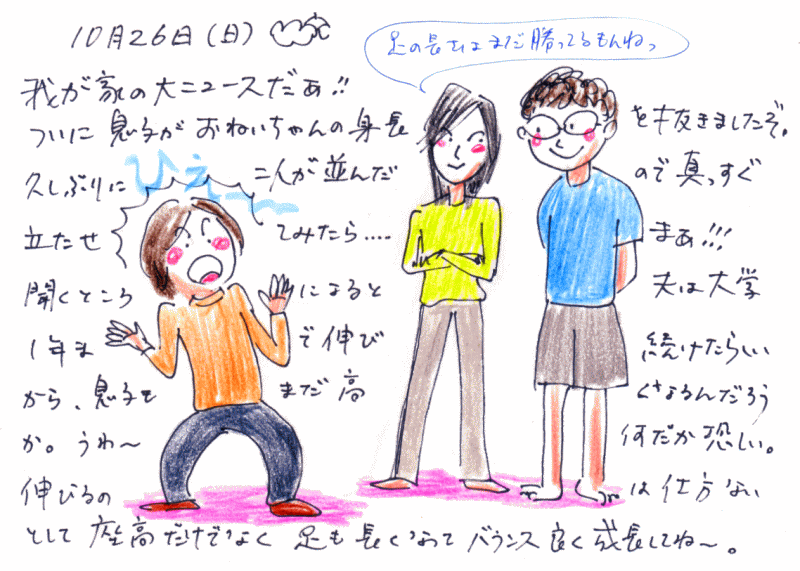 10月26日(日)
足の長さはまだ勝ってるもんねっ
我が家の大ニュースだぁ!!
ついに息子がおねいちゃんの身長を抜きましたぞ。
ひぇ〜
久しぶりに二人が並んだので真っすぐ
立たせてみたら....まぁ!!!
聞くところになると夫は大学
1年まで伸び続けたらしい
から、息子もまだ高くなるんだろう
か。うわ〜何だか恐しい。
伸びるのは仕方ない
として座高だけでなく足も長くなってバランス良く成長してね〜。